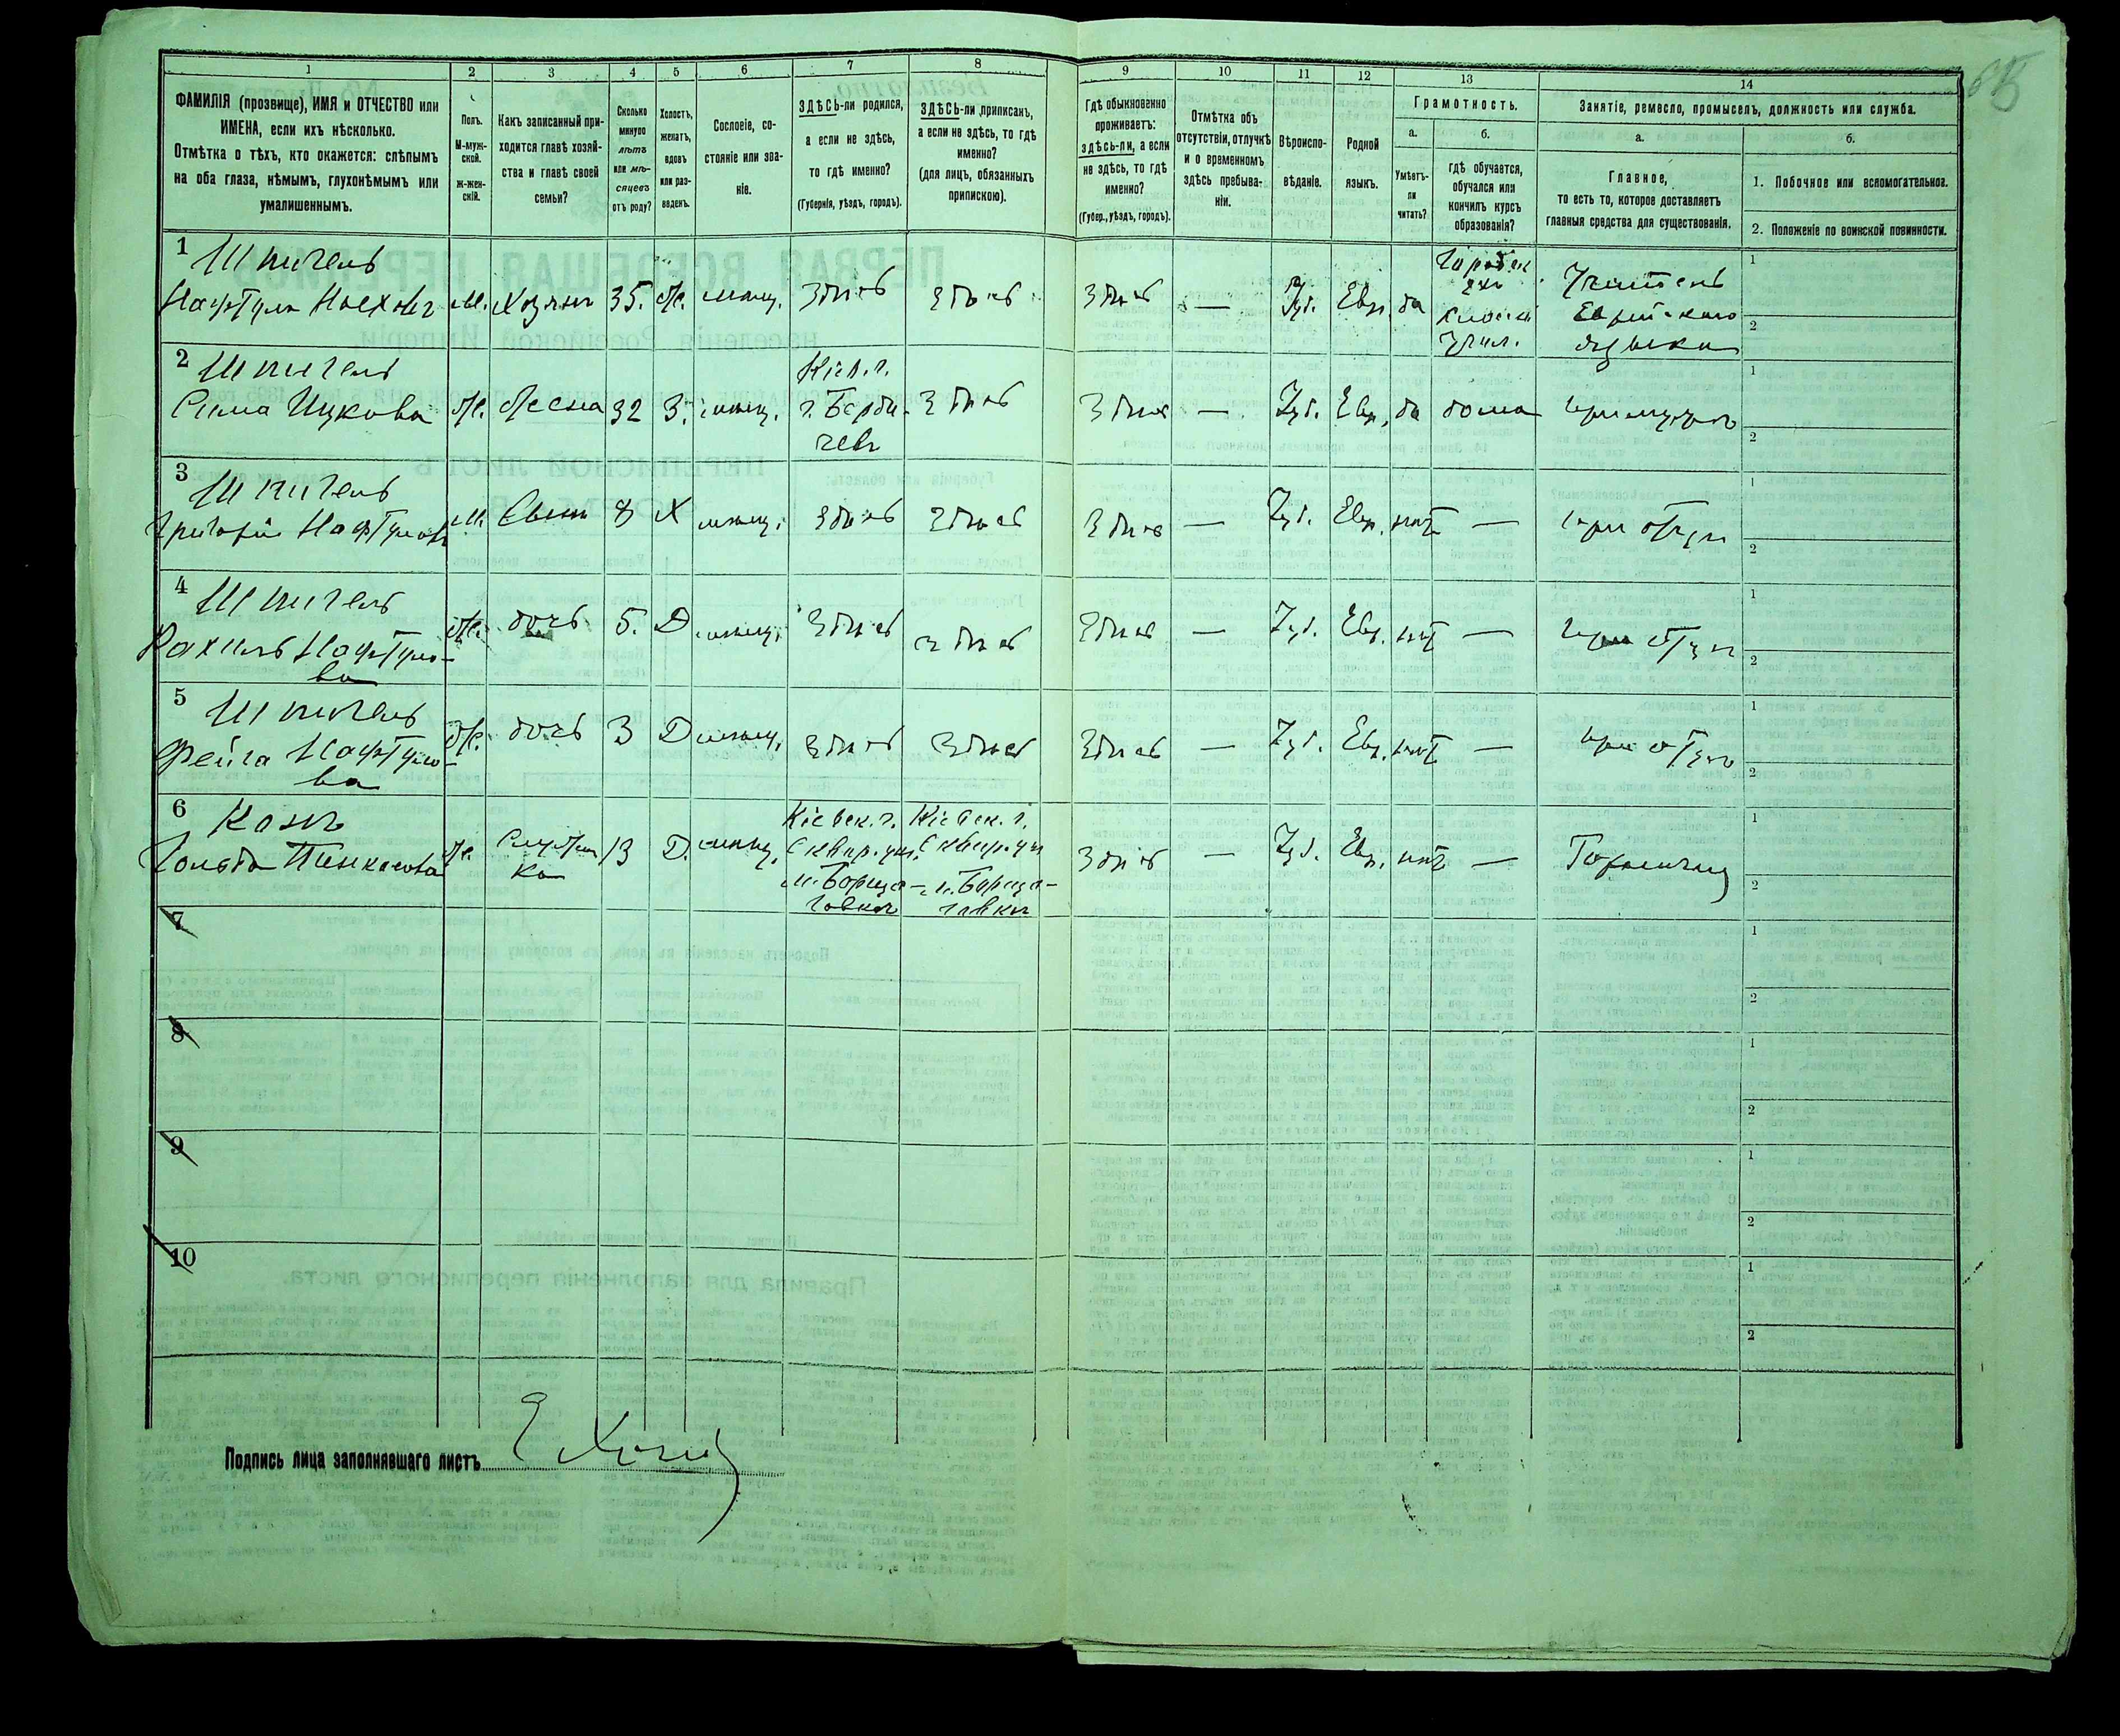 1 2 3 4 5 6 7 8 9 10 11 12 13 14
ФАМИЛІЯ (прозвище), ИМЯ и ОТЧЕСТВО или
ИМЕНА, если ихъ нѣсколько.
Отмѣтка о тѣхъ, кто окажется: слѣпымъ
на оба глаза, нѣмымъ, глухонѣмымъ или
умалишеннымъ.
Полъ.
М-муж-
ской.
Ж-жен-
скій.
Какъ записанный при-
ходится главѣ хозяй-
ства и главѣ своей
семьи?
Сколько
минуло
лѣтъ
или мѣ-
сяцевъ
отъ роду?
Холостъ,
женатъ,
вдовъ
или раз-
веденъ.
Сословіе, со-
стояніе или зва-
ніе.
ЗДѢСЬ-ли родился,
а если не здѣсь,
то гдѣ именно?
(Губернія, уѣздъ, городъ).
ЗДѢСЬ-ли приписанъ,
а если не здѣсь, то гдѣ
именно?
(для лицъ, обязанныхъ
припискою).
Гдѣ обыкновенно
проживаетъ:
здѣсь-ли, а если
не здѣсь, то гдѣ
именно?
(Губер., уѣздъ, городъ).
Отмѣтка объ
отсутствіи, отлучкѣ
и о временномъ
здѣсь пребыва-
ніи.
Вѣроиспо-
вѣданіе.
Родной
языкъ.
Грамотность.
а.
Умѣетъ-
ли
читать?
б.
гдѣ обучается,
обучался или
кончилъ курсъ
образованія?
Занятіе, ремесло, промыселъ, должность или служба.
а.
Главное,
то есть то, которое доставляетъ
главныя средства для существованія.
б.
1. Побочное или вспомогательное.
2. Положеніе по воинской повинности.
1 Шпигель
М. Хозяинъ 35. Ж. мѣщ. Здѣсь Здѣсь Здѣсь — Іуд. Евр. да
Учитель
Еврейскаго
языка
2 Шпигель
Сима Ицкова Ж. Жена 32 З. мѣщ.
Кіев. г.
г. Берди-
чевъ
Здѣсь Здѣсь — Іуд. Евр. да дома при мужѣ
3 Шпигель
Григорій М. Сынъ 8 Х мѣщ. Здѣсь Здѣсь Здѣсь — Іуд. Евр. нѣтъ — при отцѣ
4 Шпигель
Рахиль Нафтуло-
ва
Ж. дочь 5. Д мѣщ. Здѣсь Здѣсь Здѣсь — Іуд. Евр. нѣт — при отцѣ
5 Шпигель
Фейга Нафтуло-
ва
Ж. дочь 3 Д мѣщ. Здѣсь Здѣсь Здѣсь — Іуд. Евр. нѣт — при отцѣ
6 Канъ
Гольда Пинкасова Ж.
Служан-
ка
13 Д. мѣщ.
Кіевск. г.
Сквир. уѣз.
м. Борща-
говка
Кіевск. г.
Сквир. уѣз
м. Борща-
говка
Здѣсь — Іуд. Евр. нѣт — Горничная
7
8
9
10
Подпись лица заполнявшаго листъ